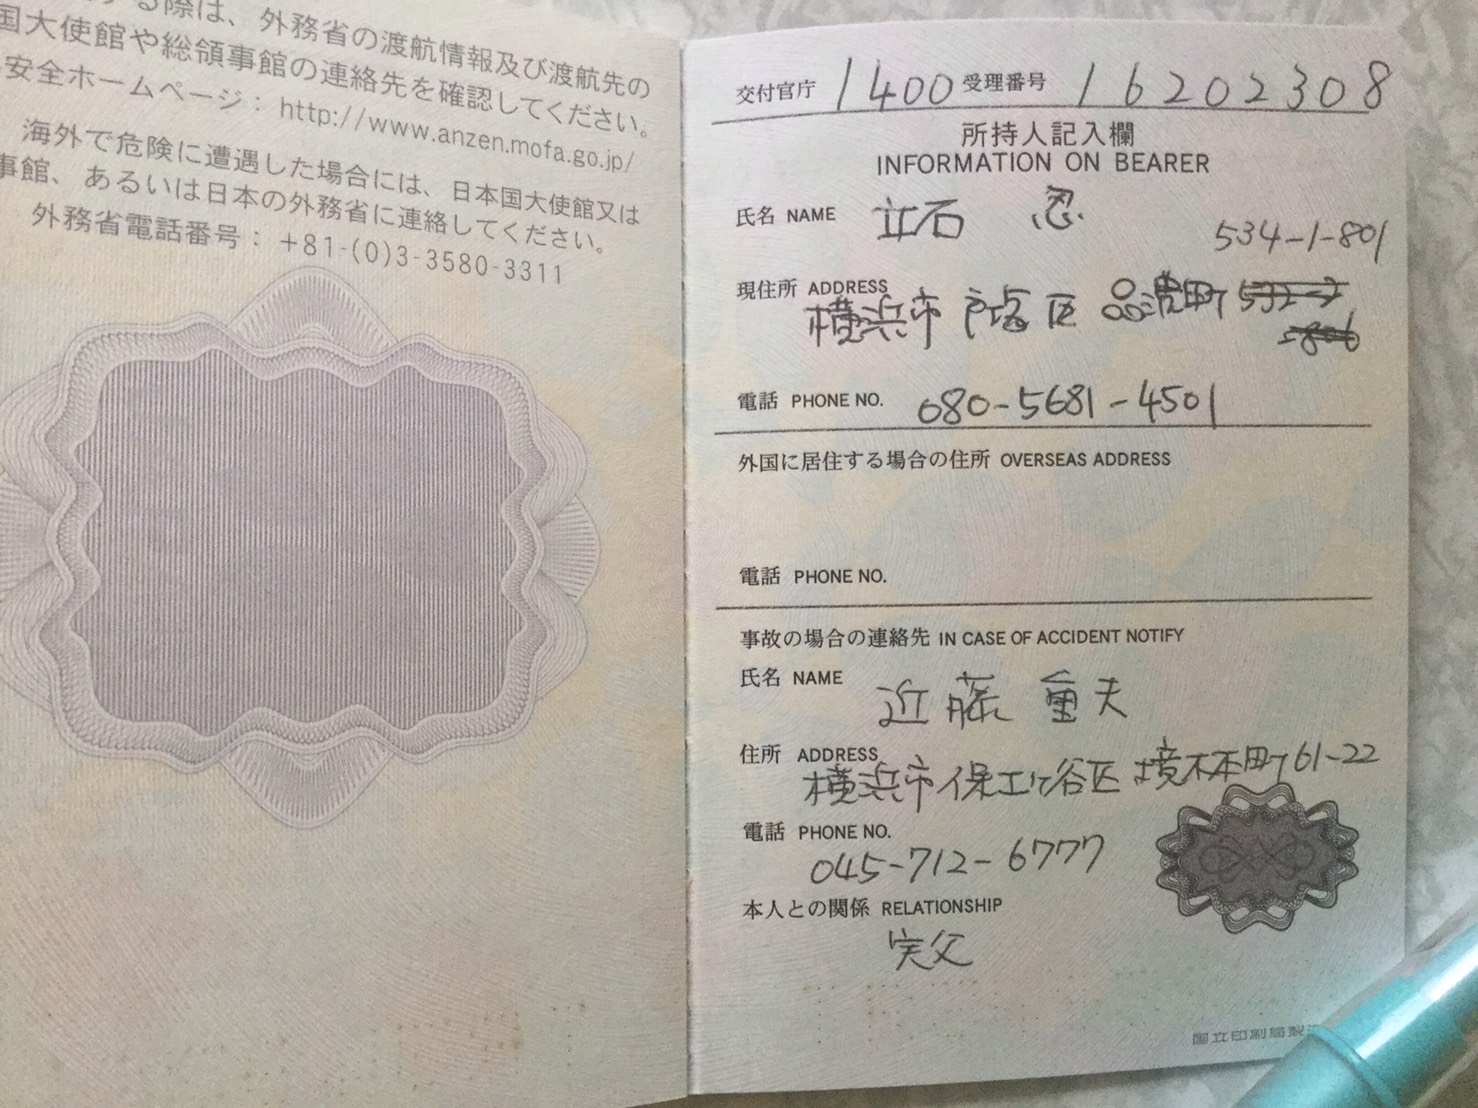 る際は、外務省の渡航情報及び渡航先の
国大使館や総領事館の連絡先を確認してください。
安全ホームページ：http://www.anzen.mofa.go.jp/
海外で危険に遭遇した場合には、日本国大使館又は
事館、あるいは日本の外務省に連絡してください。
外務省電話番号：+81-(0)3-3580-3311
交付官庁 1400 受理番号 16202308
所持人記入欄
INFORMATION ON BEARER
氏名 NAME 立石 忍
534-1-801
現住所 ADDRESS
横浜市 戸塚区 品濃町
電話 PHONE NO. 080-5681-4501
外国に居住する場合の住所 OVERSEAS ADDRESS
電話 PHONE NO.
事故の場合の連絡先 IN CASE OF ACCIDENT NOTIFY
氏名 NAME 近藤 重夫
住所 ADDRESS
横浜市保土ヶ谷区 境木本町61-22
電話 PHONE NO.
045-712-6777
本人との関係 RELATIONSHIP
実父
国立印刷局製